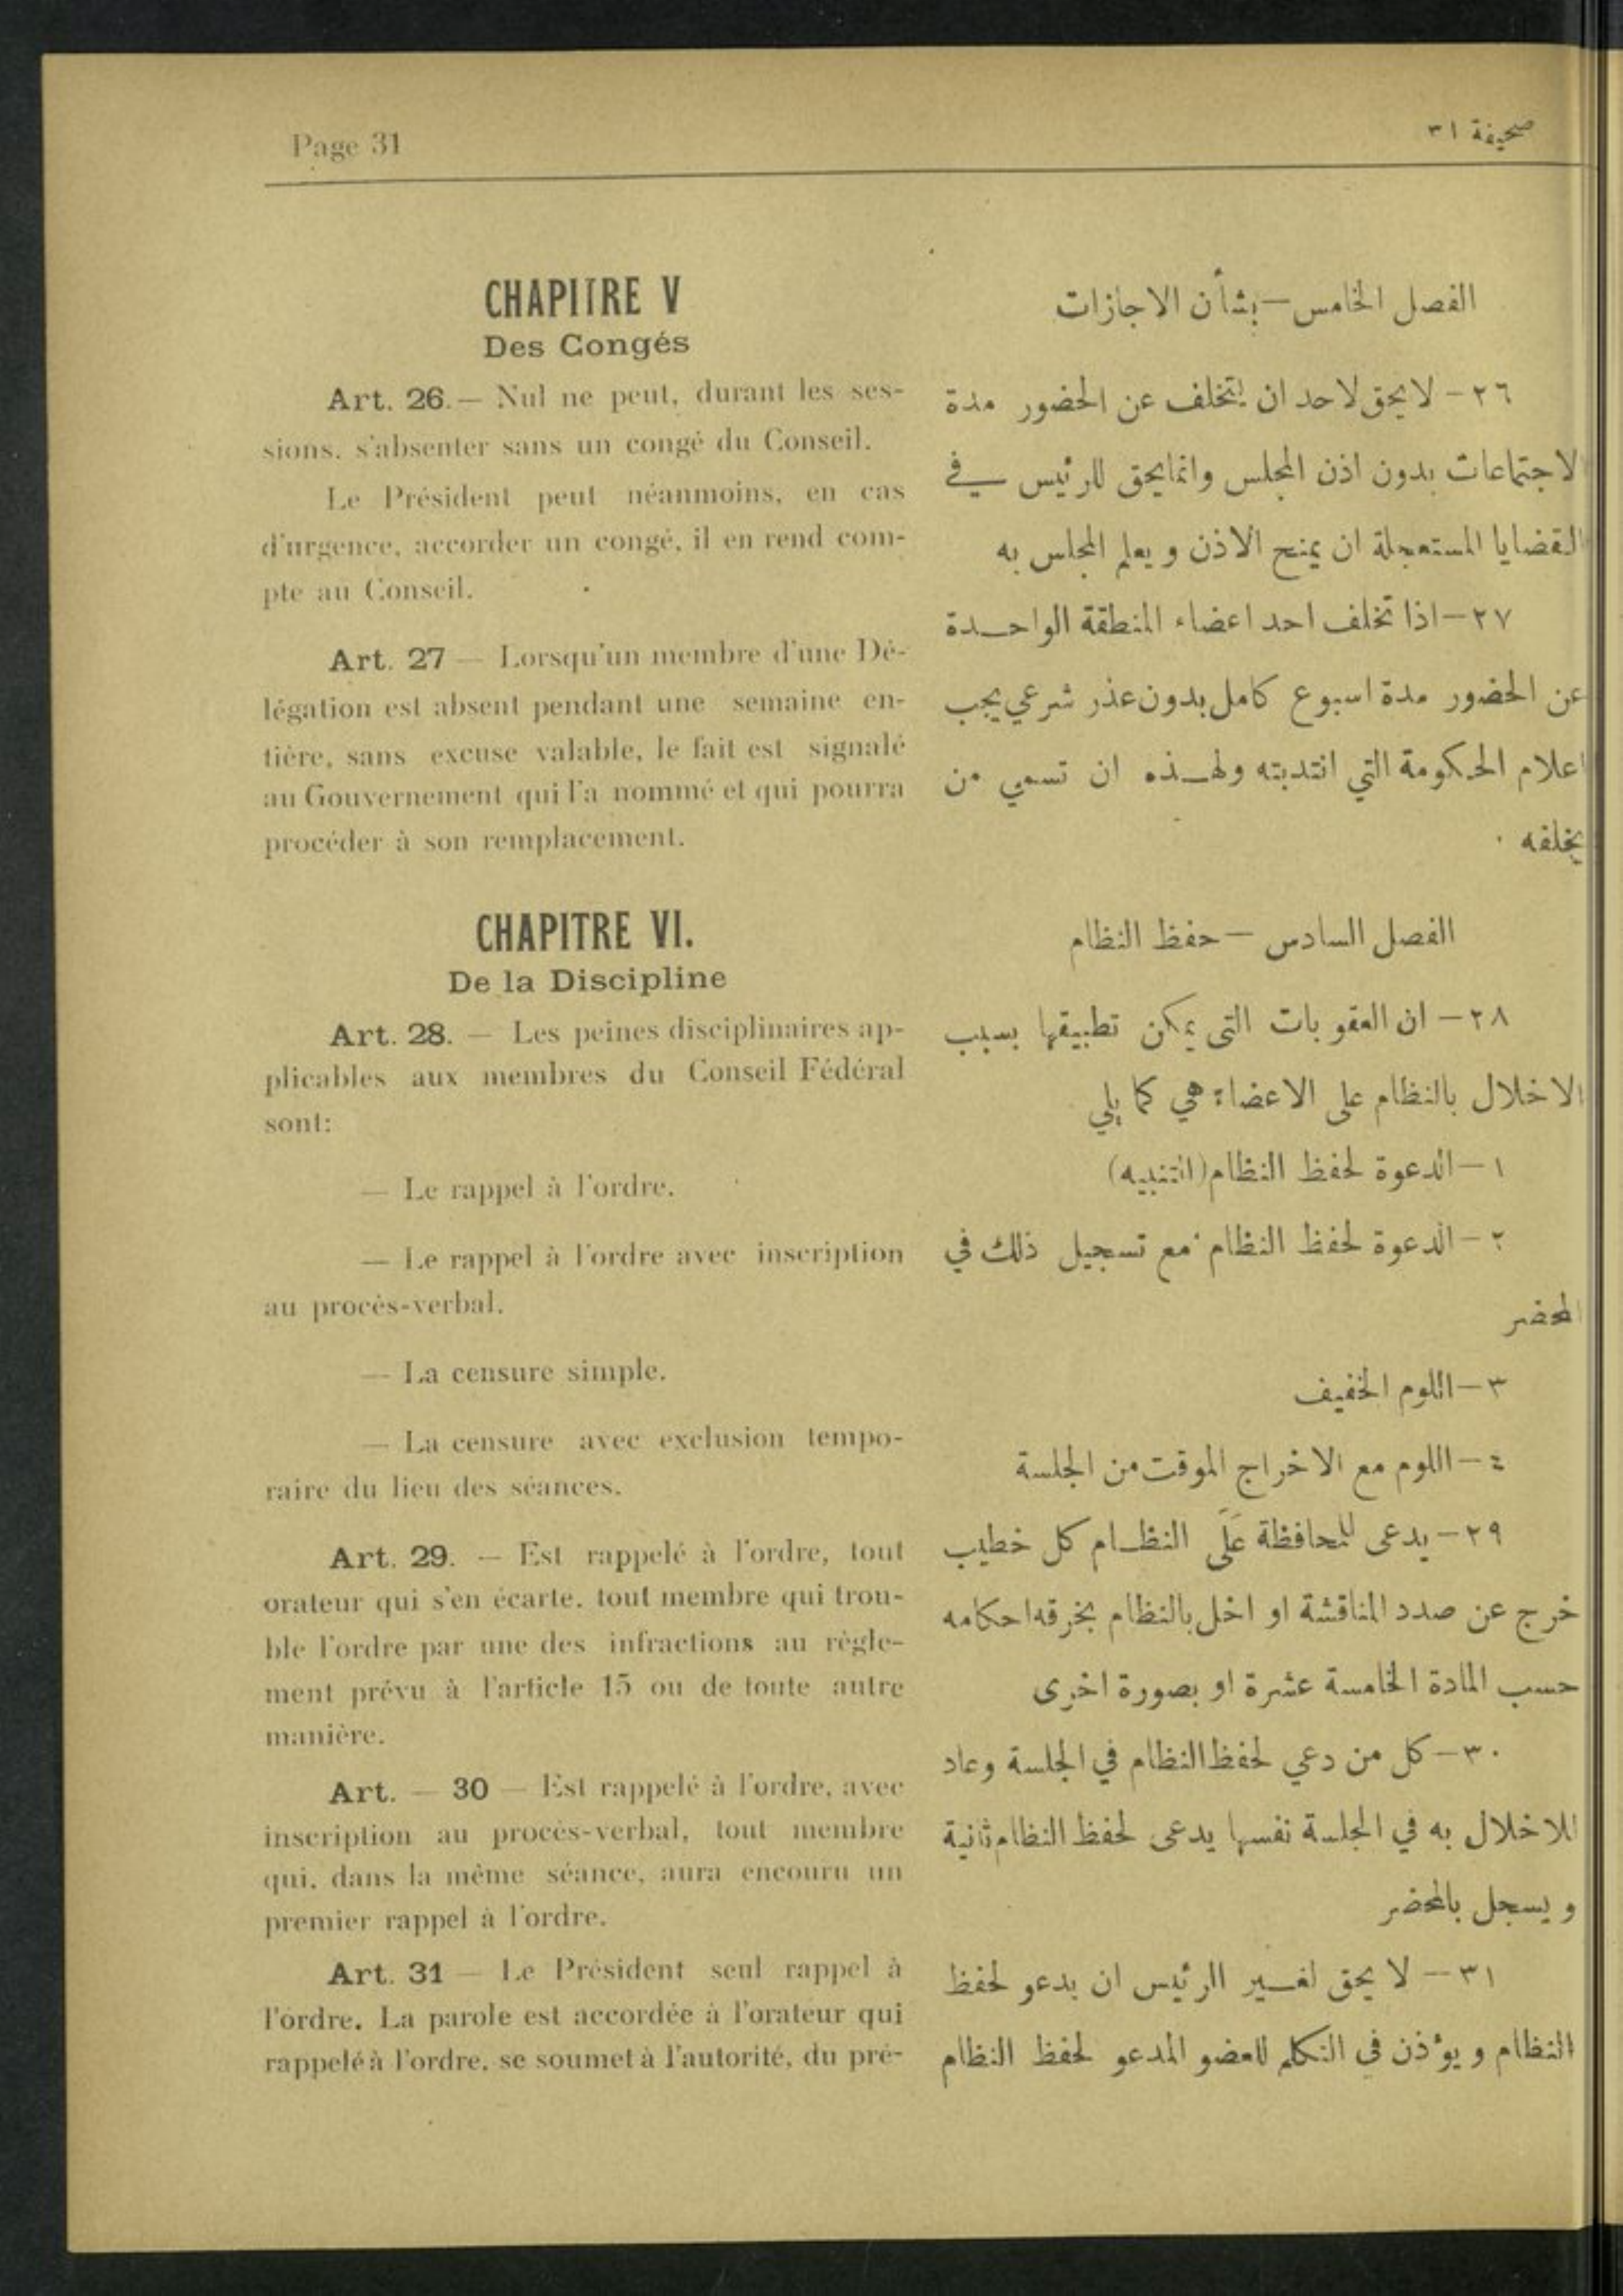 Page 31
صحيفة ٣١
CHAPITRE V
Des Congés
Art. 26.— Nul ne peut, durant les ses-
sions, s'absenter sans un congé du Conseil.
Le Président peut néanmoins, en cas
d'urgence, accorder un congé, il en rend com-
pte au Conseil.
Art. 27 — Lorsqu'un membre d'une Dé-
légation est absent pendant une semaine en-
tière, sans excuse valable, le fait est signalé
au Gouvernement qui l'a nommé et qui pourra
procéder à son remplacement.
CHAPITRE VI.
De la Discipline
Art. 28. — Les peines disciplinaires ap-
plicables aux membres du Conseil Fédéral
sont:
— Le rappel à l'ordre.
— Le rappel à l'ordre avec inscription
au procès-verbal.
— La censure simple.
— La censure avec exclusion tempo-
raire du lieu des séances.
Art. 29. — Est rappelé à l'ordre, tout
orateur qui s'en écarte, tout membre qui trou-
ble l'ordre par une des infractions au règle-
ment prévu à l'article 15 ou de toute autre
manière.
Art. — 30 — Est rappelé à l'ordre, avec
inscription au procès-verbal, tout membre
qui, dans la même séance, aura encouru un
premier rappel à l'ordre.
Art. 31 — Le Président seul rappel à
l'ordre. La parole est accordée à l'orateur qui
rappelé à l'ordre, se soumet à l'autorité, du pré-
الفصل الخامس — بشأن الاجازات
٢٦ — لا يحق لاحد ان يتخلف عن الحضور مدة
الاجتماعات بدون اذن المجلس وانما يحق للرئيس في
القضايا المستعجلة ان يمنح الاذن و يعلم المجلس به
٢٧ — اذا تخلف احد اعضاء المنطقة الواحدة
عن الحضور مدة اسبوع كامل بدون عذر شرعي يجب
اعلام الحكومة التي انتدبته ولهذه ان تسمي من
يخلفه .
الفصل السادس — حفظ النظام
٢٨ — ان العقوبات التى يمكن تطبيقها بسبب
الاخلال بالنظام على الاعضاء هي كما يلي
١ — الدعوة لحفظ النظام (التنبيه)
٢ — الدعوة لحفظ النظام مع تسجيل ذلك في
المحضر
٣ — اللوم الخفيف
٤ — اللوم مع الاخراج الموقت من الجلسة
٢٩ — يدعى للمحافظة عَلَى النظام كل خطيب
خرج عن صدد المناقشة او اخل بالنظام بخرقه احكامه
حسب المادة الخامسة عشرة او بصورة اخرى
٣٠ — كل من دعي لحفظ النظام في الجلسة وعاد
للاخلال به في الجلسة نفسها يدعى لحفظ النظام ثانية
و يسجل بالمحضر
٣١ — لا يحق لغير الرئيس ان يدعو لحفظ
النظام و يؤذن في التكلم للعضو المدعو لحفظ النظام